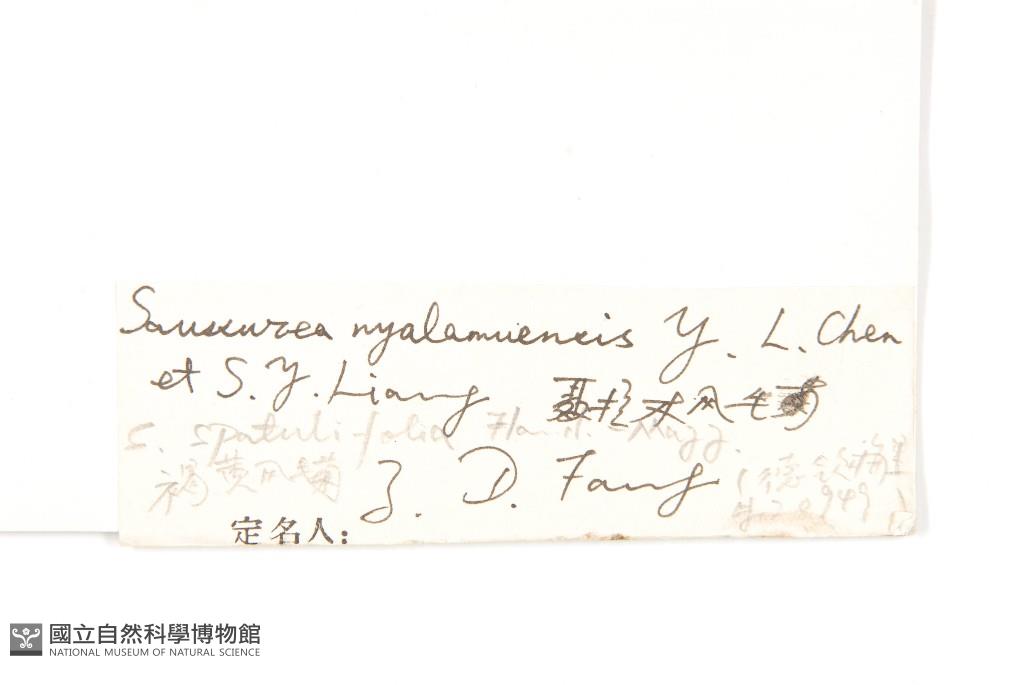 Saussurea nyalamuensis Y. L. Chen
et S. Y. Liang 聂拉木风毛菊
S. spatulifolia Hand.-Mazz.
褐黄风毛菊
Z. D. Fang
定名人:
國立自然科學博物館
NATIONAL MUSEUM OF NATURAL SCIENCE